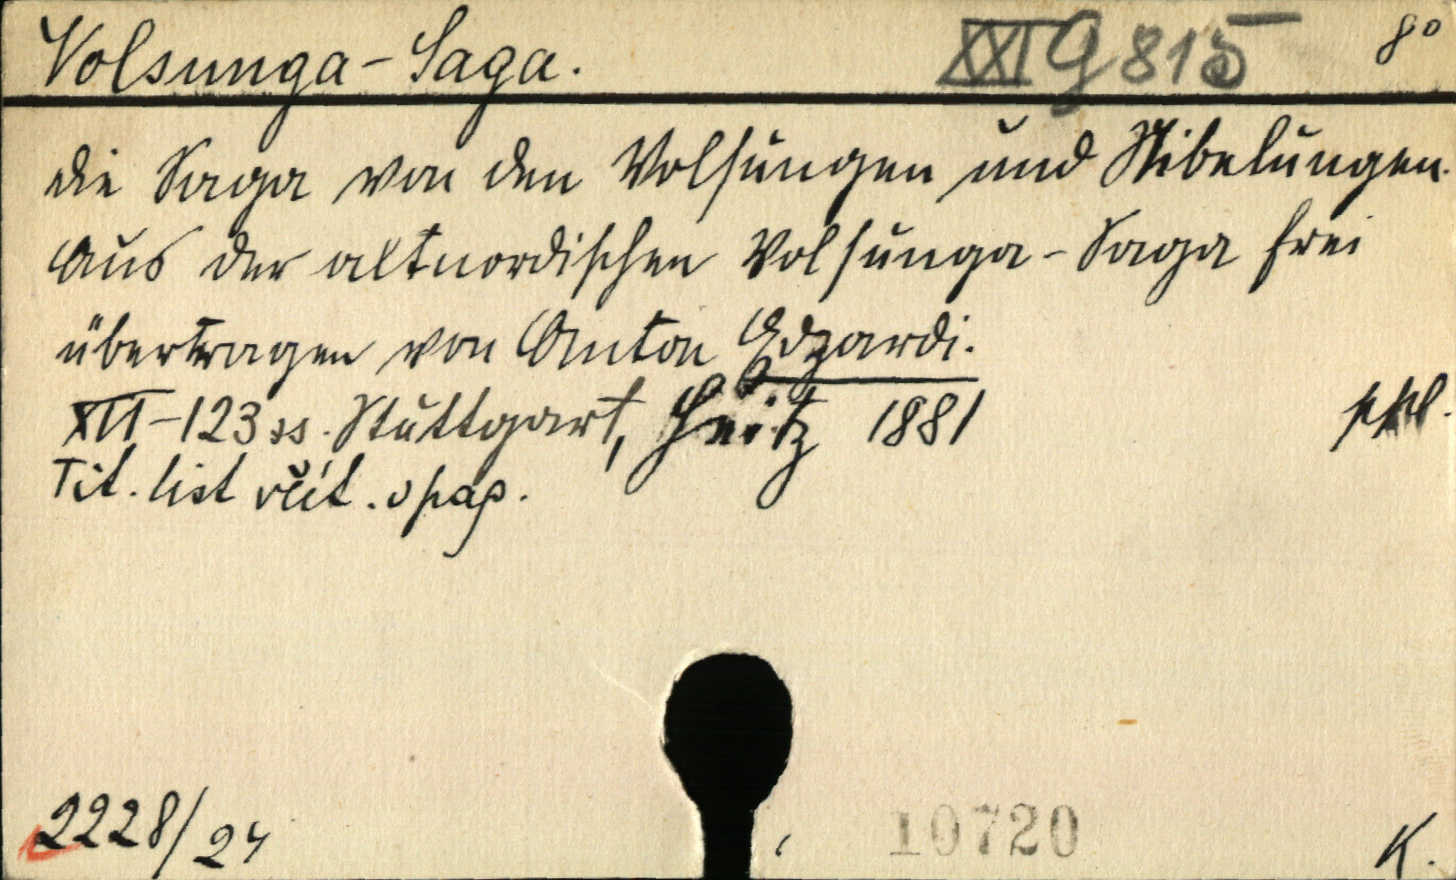 Volsunga-Saga. XXI G 815 8°
Die Saga von den Volsungen und Nibelungen.
Aus der altnordischen Volsunga-Saga frei
übertragen von Anton Edzardi.
XII-123 ss. Stuttgart, Heitz 1881 ppl.
Tit. list včít. v pap.
2228/24 10720 K.